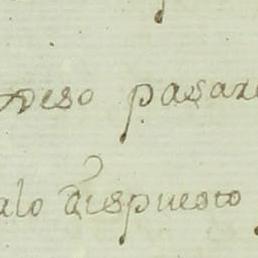 peso pasara
alo dispuesto